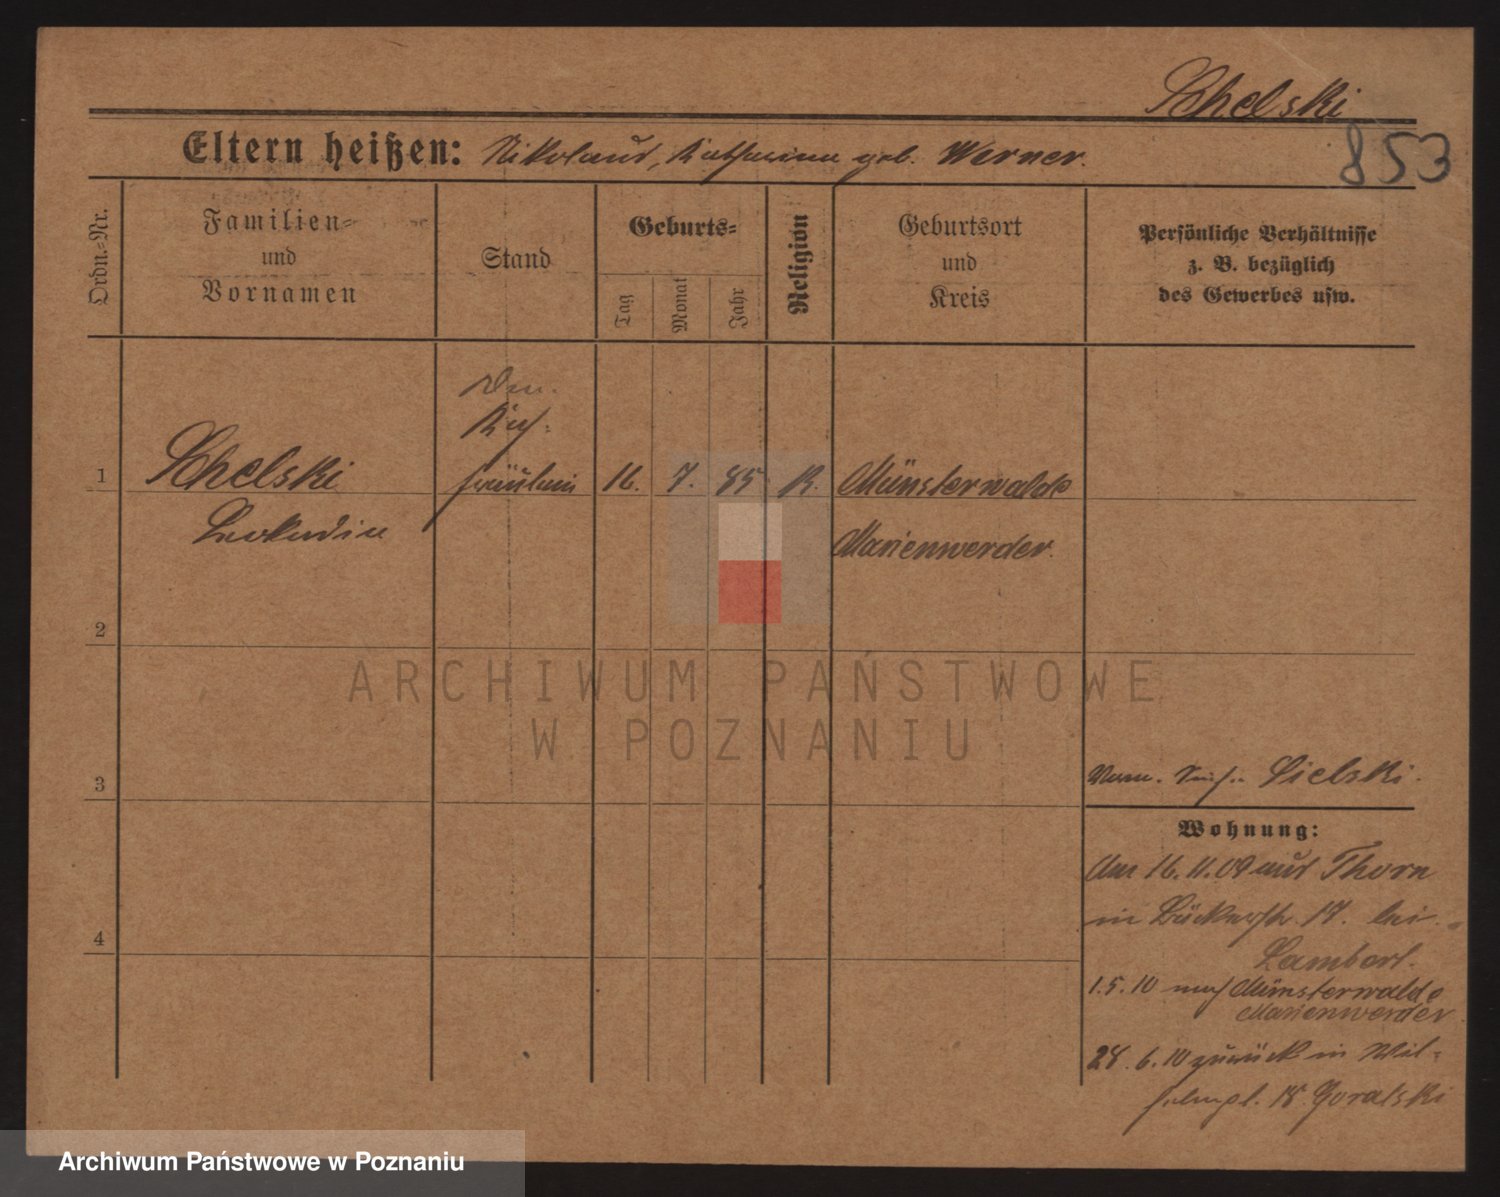 Schelski
853
Eltern heißen: Nikolaus, Katharina geb. Werner.
Ordn.=Nr.
Familien= und Vornamen
Stand
Geburts=
Tag
Monat
Jahr
Religion
Geburtsort und Kreis
Persönliche Verhältnisse
z. B. bezüglich
des Gewerbes usw.
1
Schelski
fräulein
16.
7.
85
K.
Münsterwalde
Leokadia
Marienwerder.
2
ARCHIWUM PAŃSTWOWE
W POZNANIU
3
Sielski.
Wohnung:
Am 16.11.09 aus Thorn
in Bäckerstr. 17. bei
Lambert.
1.5.10 nach Münsterwalde
Marienwerder
4
28.6.10 zurück in Wil=
helmpl. 18 Goralski
Archiwum Państwowe w Poznaniu